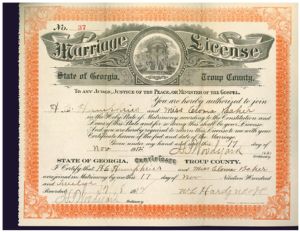 No. 37
Marriage License
State of Georgia, Troup County.
TO ANY JUDGE, JUSTICE OF THE PEACE, OR MINISTER OF THE GOSPEL.
You are hereby authorized to join
and Miss Baker
in the Holy State of Matrimony according to the Constitution and
Laws of this State and for so doing this shall be your License.
And you are hereby required to return this License to me with your
Certificate hereon of the fact and date of the Marriage.
Given under my hand and seal this 17 day of
Nov
STATE OF GEORGIA, Certificate TROUP COUNTY.
I Certify that Humphries and Miss Baker
were joined in Matrimony by me this 17 day of Nov Nineteen Hundred
and Twelve